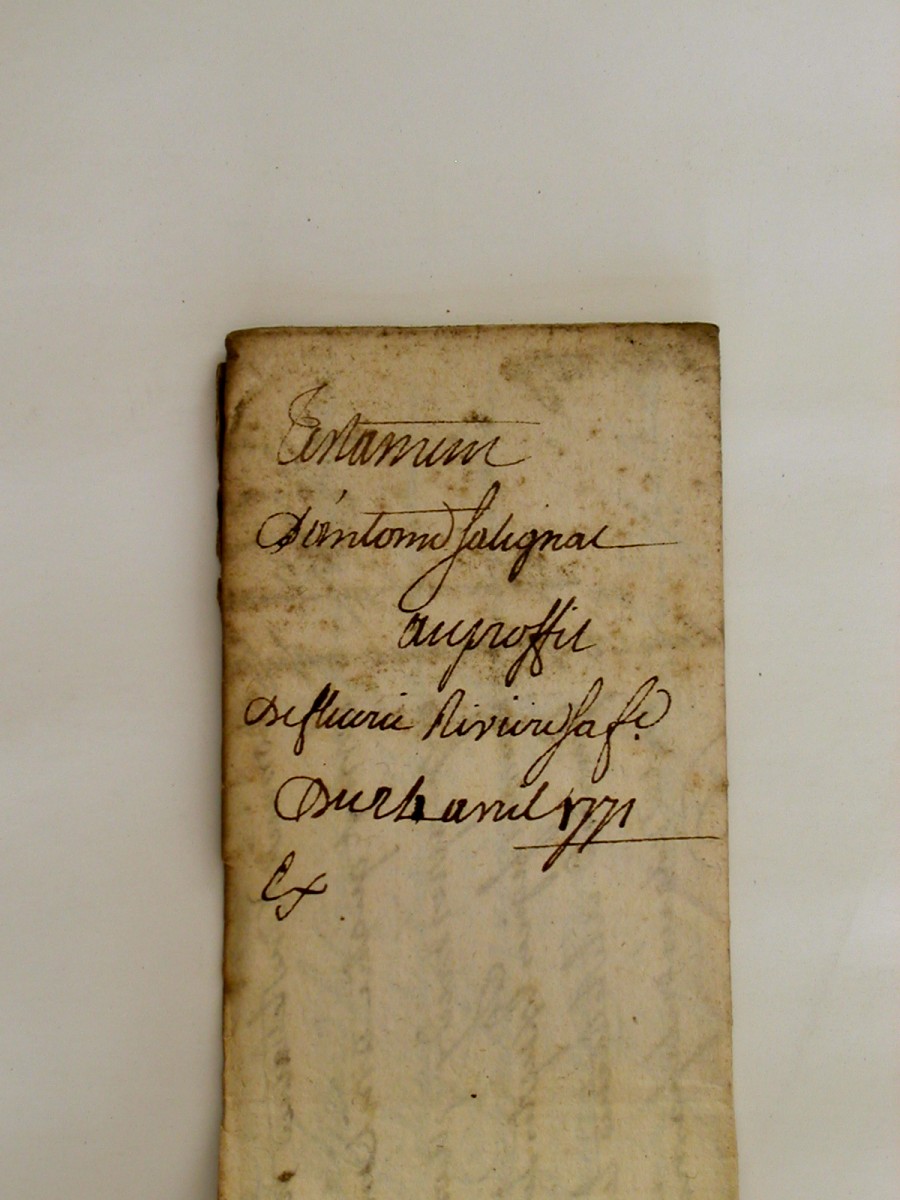 Testament
D'antoine Salignac
au proffit
De fleurie Riviere Sa fe.
Du 24 avril 1771
Ex